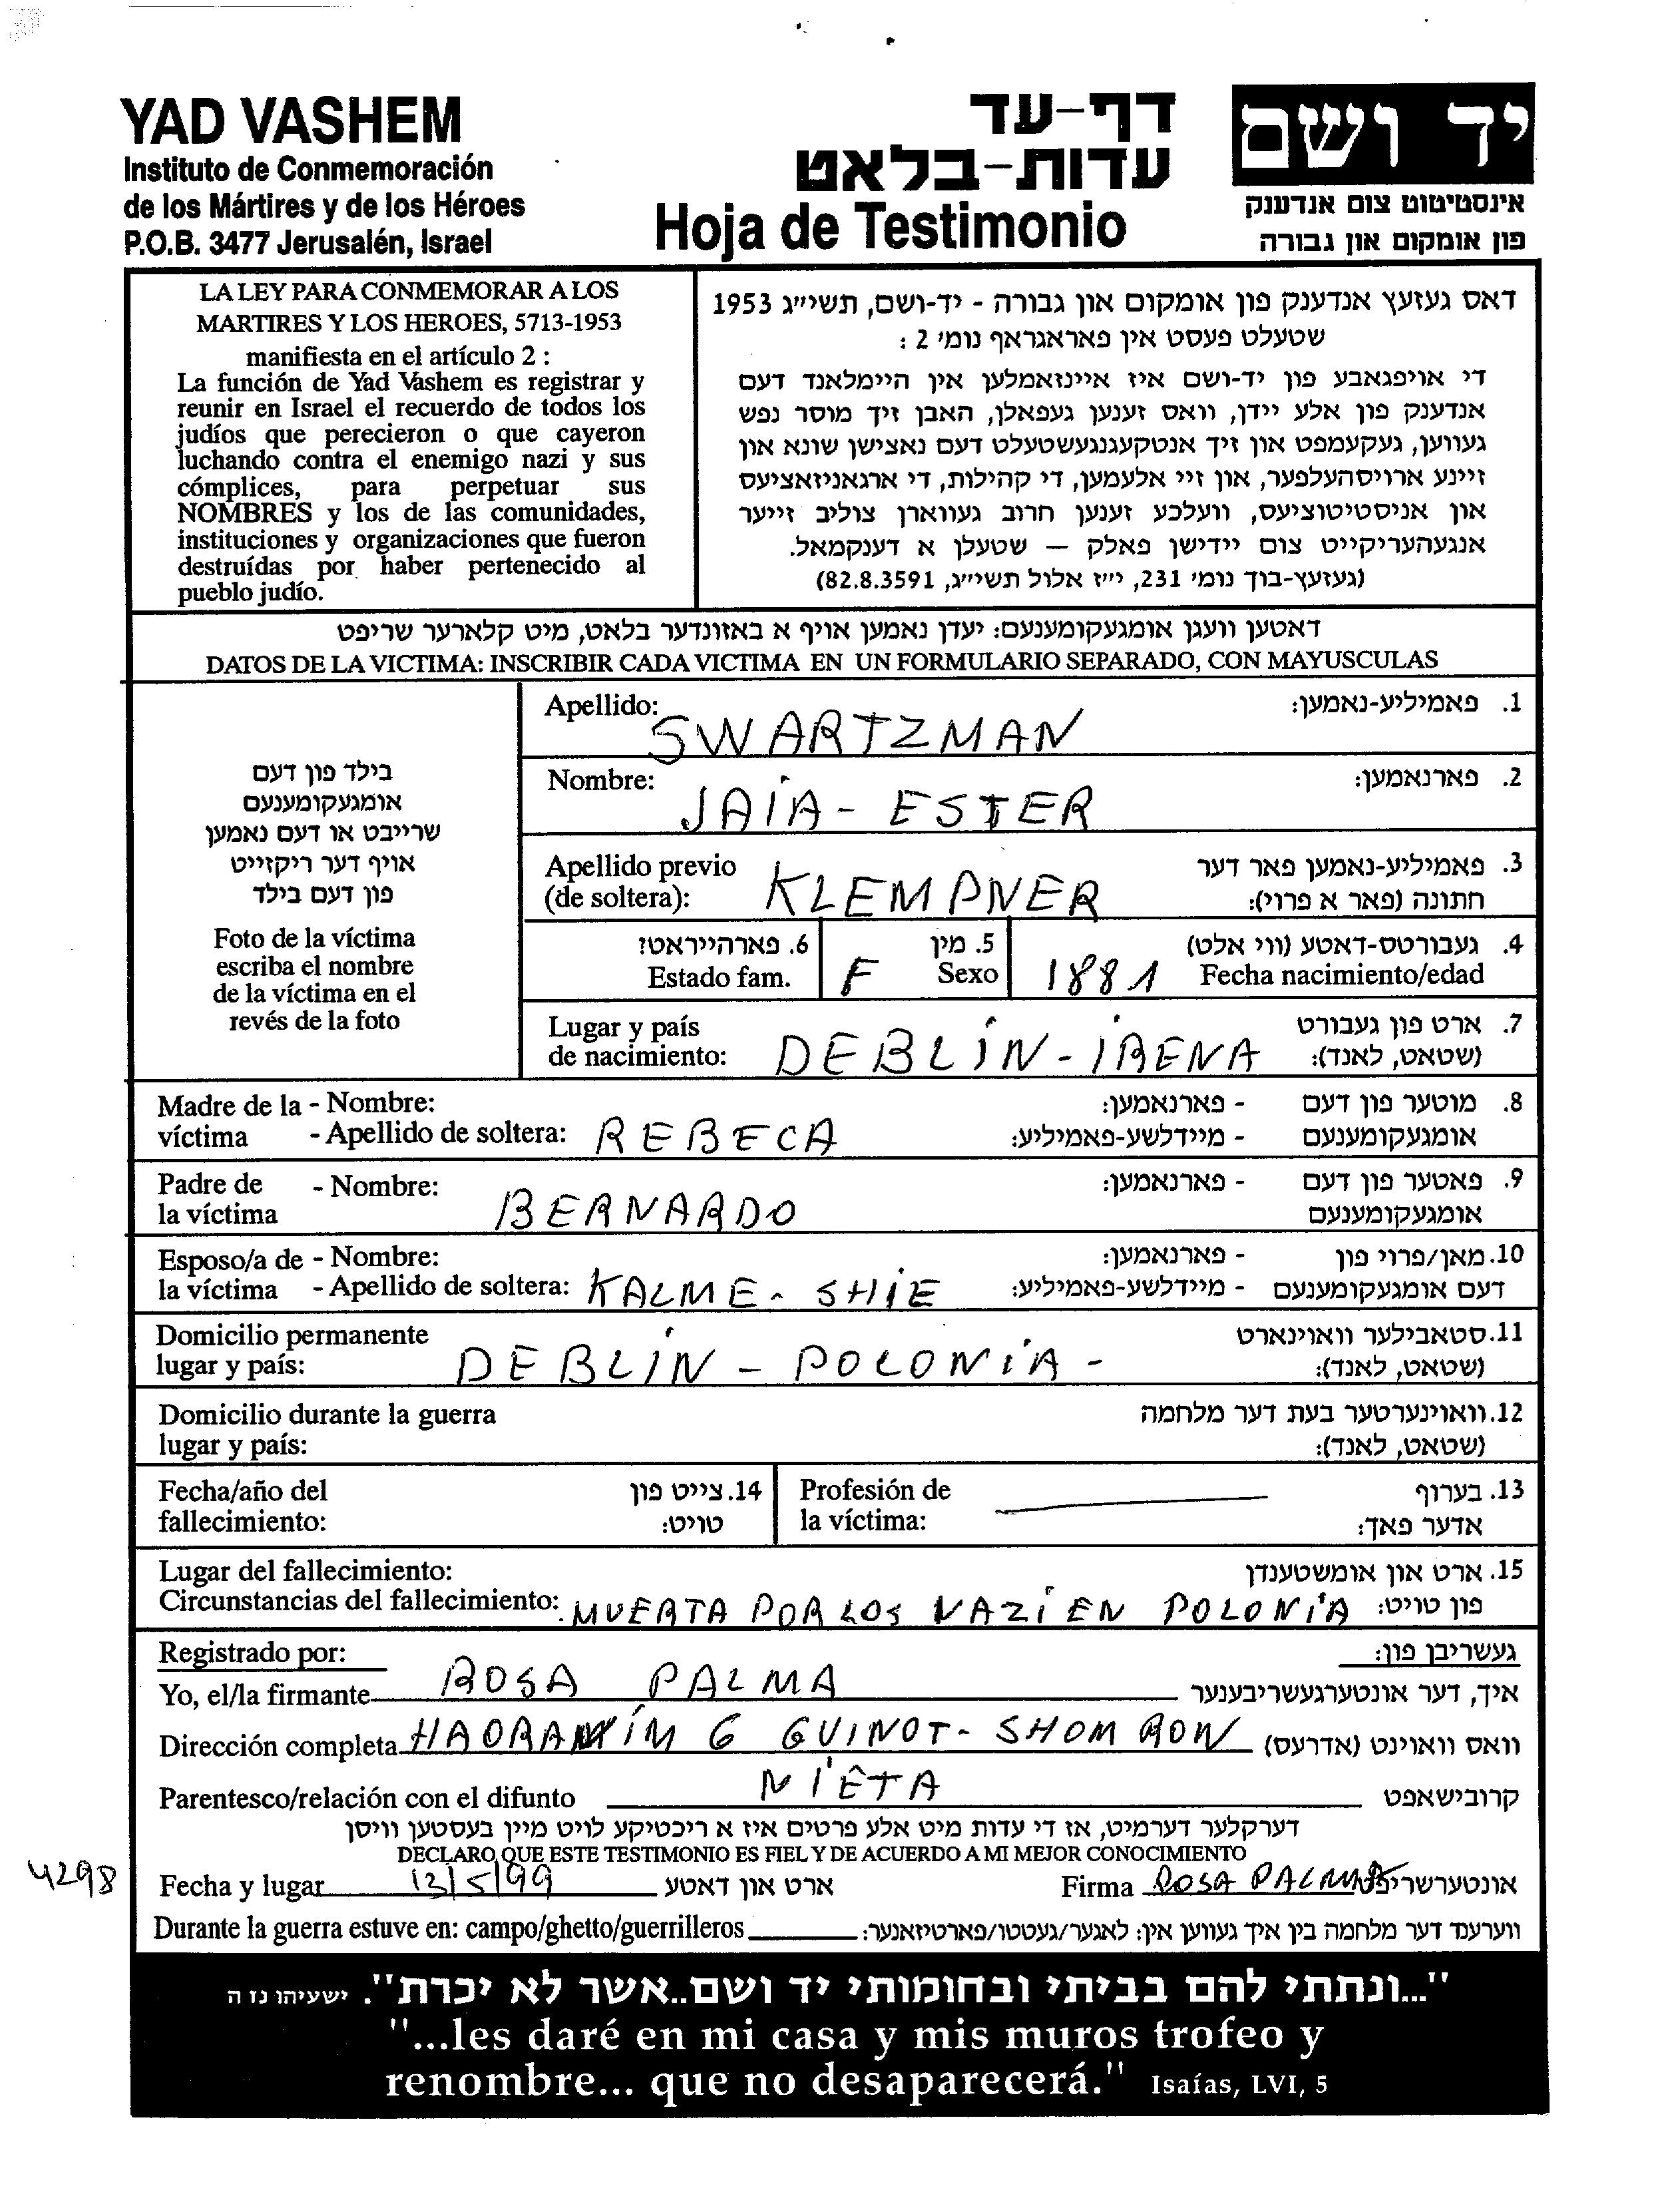 YAD VASHEM
Instituto de Conmemoración
de los Mártires y de los Héroes
P.O.B. 3477 Jerusalén, Israel
דף-עד
עדות-בלאט
Hoja de Testimonio
יד ושם
אינסטיטוט צום אנדענק
פון אומקום און גבורה
LA LEY PARA CONMEMORAR A LOS
MARTIRES Y LOS HEROES, 5713-1953
manifiesta en el artículo 2 :
La función de Yad Vashem es registrar y
reunir en Israel el recuerdo de todos los
judíos que perecieron o que cayeron
luchando contra el enemigo nazi y sus
cómplices, para perpetuar sus
NOMBRES y los de las comunidades,
instituciones y organizaciones que fueron
destruídas por haber pertenecido al
pueblo judío.
דאס געזעץ אנדענק פון אומקום און גבורה - יד-ושם, תשי״ג 1953
שטעלט פעסט אין פאראגראף נומ׳ 2 :
די אויפגאבע פון יד-ושם איז איינזאמלען אין היימלאנד דעם
אנדענק פון אלע יידן, וואס זענען געפאלן, האבן זיך מוסר נפש
געווען, געקעמפט און זיך אנטקעגנגעשטעלט דעם נאצישן שונא און
זיינע ארויסהעלפער, און זיי אלעמען, די קהילות, די ארגאניזאציעס
און אניסטיטוציעס, וועלכע זענען חרוב געווארן צוליב זייער
אנגעהעריקייט צום יידישן פאלק — שטעלן א דענקמאל.
(געזעץ-בוך נומ׳ 231, י״ז אלול תשי״ג, 82.8.3591)
דאטען וועגן אומגעקומענעם: יעדן נאמען אויף א באזונדער בלאט, מיט קלארער שריפט
DATOS DE LA VICTIMA: INSCRIBIR CADA VICTIMA EN UN FORMULARIO SEPARADO, CON MAYUSCULAS
בילד פון דעם
אומגעקומענעם
שרייבט או דעם נאמען
אויף דער ריקזייט
פון דעם בילד
Foto de la víctima
escriba el nombre
de la víctima en el
revés de la foto
Apellido: SWARTZMAN 1. פאמיליע-נאמען:
Nombre: JAIA - ESTER 2. פארנאמען:
Apellido previo 3. פאמיליע-נאמען פאר דער
(de soltera): KLEMPNER חתונה (פאר א פרוי):
6. פארהייראט? 5. מין 4. געבורטס-דאטע (ווי אלט)
Estado fam. F Sexo 1881 Fecha nacimiento/edad
Lugar y país 7. ארט פון געבורט
de nacimiento: DEBLIN - IRENA (שטאט, לאנד):
Madre de la - Nombre: - פארנאמען: 8. מוטער פון דעם
víctima - Apellido de soltera: REBECA - מיידלשע-פאמיליע: אומגעקומענעם
Padre de - Nombre: - פארנאמען: 9. פאטער פון דעם
la víctima BERNARDO אומגעקומענעם
Esposo/a de - Nombre: - פארנאמען: 10. מאן/פרוי פון
la víctima - Apellido de soltera: KALME - SHIE - מיידלשע-פאמיליע: דעם אומגעקומענעם
Domicilio permanente 11. סטאבילער וואוינארט
lugar y país: DEBLIN - POLONIA - (שטאט, לאנד):
Domicilio durante la guerra 12. וואוינערטער בעת דער מלחמה
lugar y país: (שטאט, לאנד):
Fecha/año del 14. צייט פון Profesión de 13. בערוף
fallecimiento: טויט: la víctima: אדער פאך:
Lugar del fallecimiento: 15. ארט און אומשטענדן
Circunstancias del fallecimiento: MUERTA POR LOS NAZI EN POLONIA פון טויט:
Registrado por: געשריבן פון:
Yo, el/la firmante ROSA PALMA איך, דער אונטערגעשריבענער
Dirección completa 6 GUINOT - SHOMRON וואס וואוינט (אדרעס)
Parentesco/relación con el difunto NIETA קרובישאפט
דערקלער דערמיט, אז די עדות מיט אלע פרטים איז א ריכטיקע לויט מיין בעסטען וויסן
DECLARO QUE ESTE TESTIMONIO ES FIEL Y DE ACUERDO A MI MEJOR CONOCIMIENTO
4298
Fecha y lugar 13/5/99 ארט און דאטע Firma ROSA PALMA אונטערשריפט
Durante la guerra estuve en: campo/ghetto/guerrilleros ווערענד דער מלחמה בין איך געווען אין: לאגער/געטטו/פארטיזאנער:
"...ונתתי להם בביתי ובחומותי יד ושם..אשר לא יכרת". ישעיהו נז ה
"...les daré en mi casa y mis muros trofeo y
renombre... que no desaparecerá." Isaías, LVI, 5